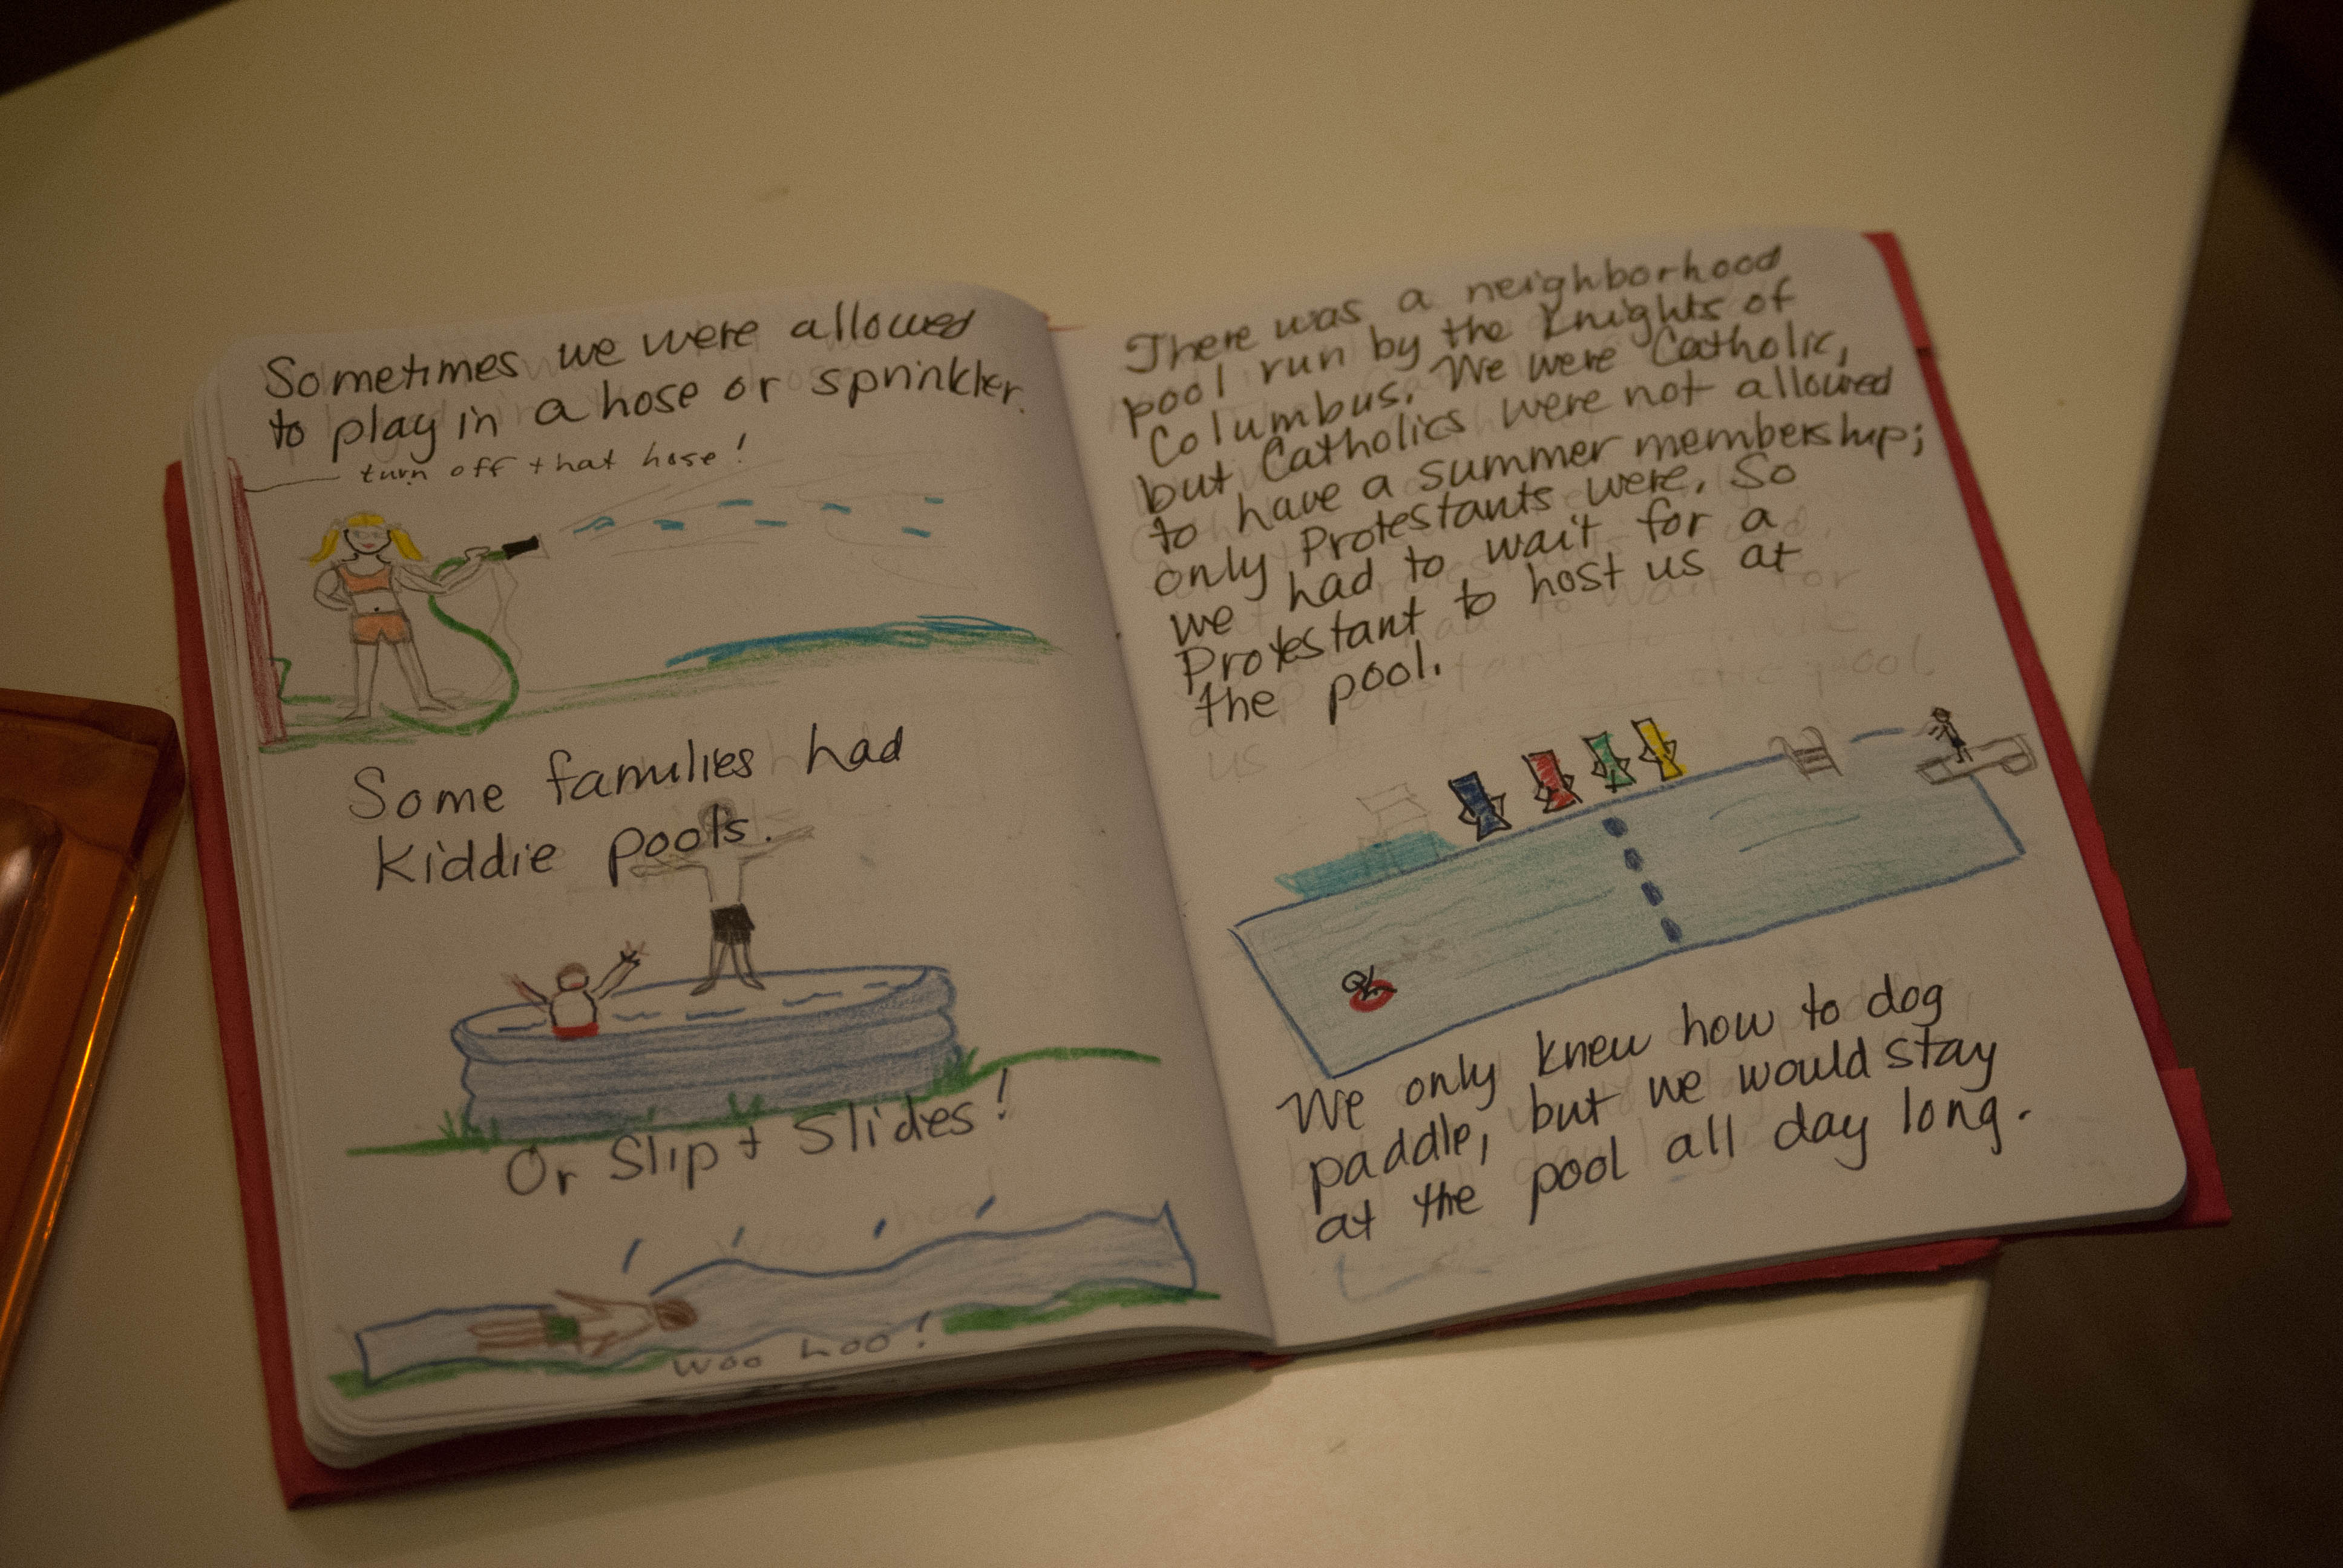 Sometimes we were allowed
to play in a hose or sprinkler.
turn off that hose!
Some families had
kiddie pools.
Or Slip + Slides!
woo hoo!
There was a neighborhood
pool run by the Knights of
Columbus. We were Catholic,
but Catholics were not allowed
to have a summer membership;
only Protestants were. So
we had to wait for a
Protestant to host us at
the pool.
We only knew how to dog
paddle, but we would stay
at the pool all day long.